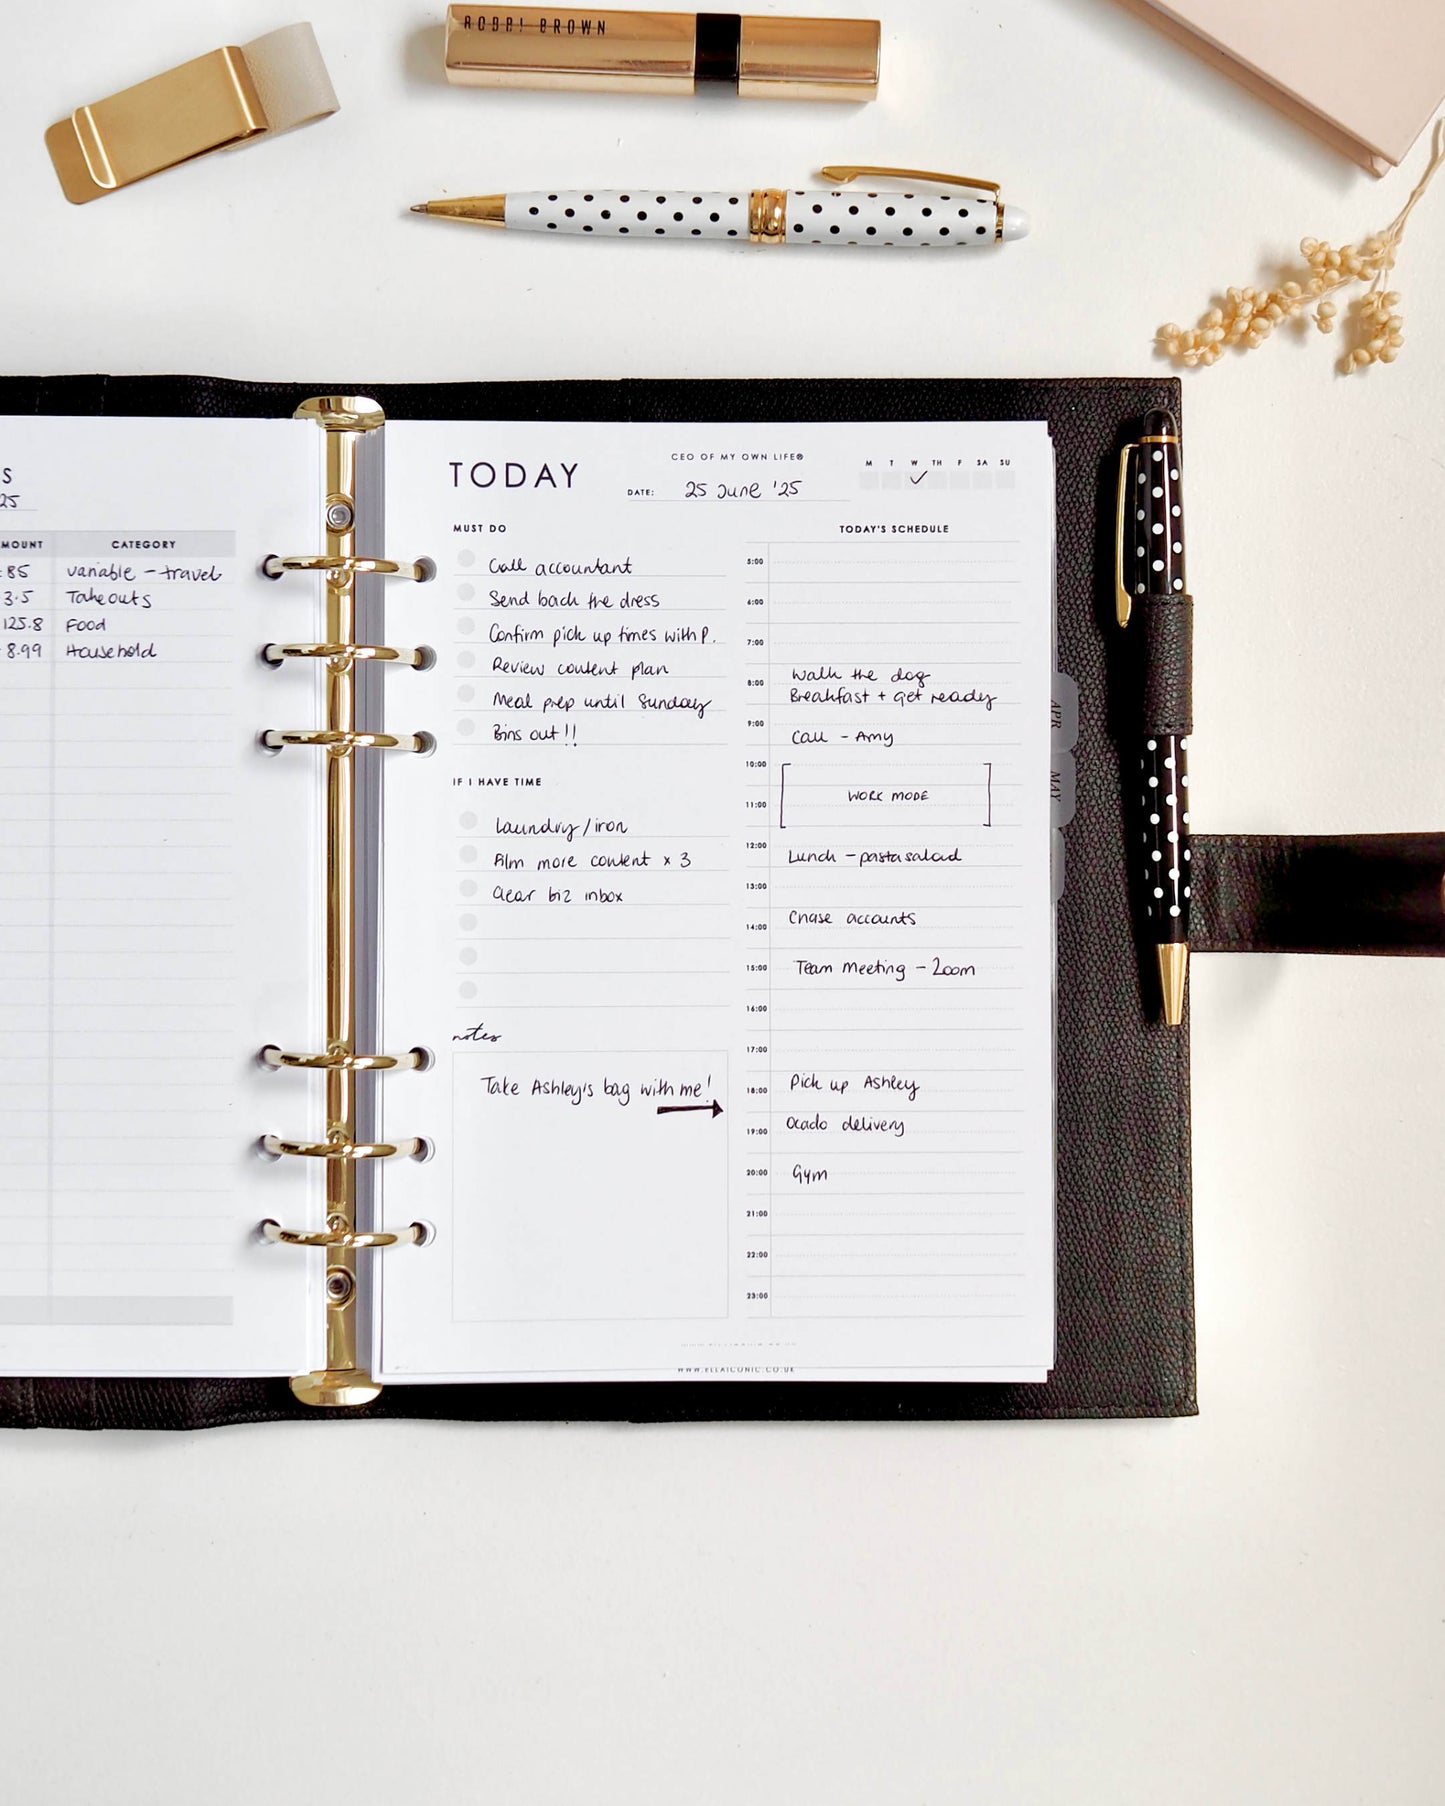 BOBBI BROWN
S
25
MOUNT CATEGORY
85 variable - travel
3.5 Takeouts
125.8 Food
8.99 Household
TODAY
CEO OF MY OWN LIFE®
DATE: 25 June '25
M T W TH F SA SU
MUST DO
Call accountant
Send back the dress
Confirm pick up times with P.
Review content plan
Meal prep until Sunday
Bins out!!
IF I HAVE TIME
Laundry/iron
Film more content x 3
Clear biz inbox
notes
Take Ashley's bag with me!
TODAY'S SCHEDULE
5:00
6:00
7:00
8:00 Walk the dog
Breakfast + get ready
9:00
Call - Amy
10:00
WORK MODE
11:00
12:00 Lunch - pasta salad
13:00
14:00 Chase accounts
15:00 Team meeting - Zoom
16:00
17:00
18:00 Pick up Ashley
19:00 Ocado delivery
20:00 Gym
21:00
22:00
23:00
APR
MAY
WWW.ELLAICONIC.CO.UK